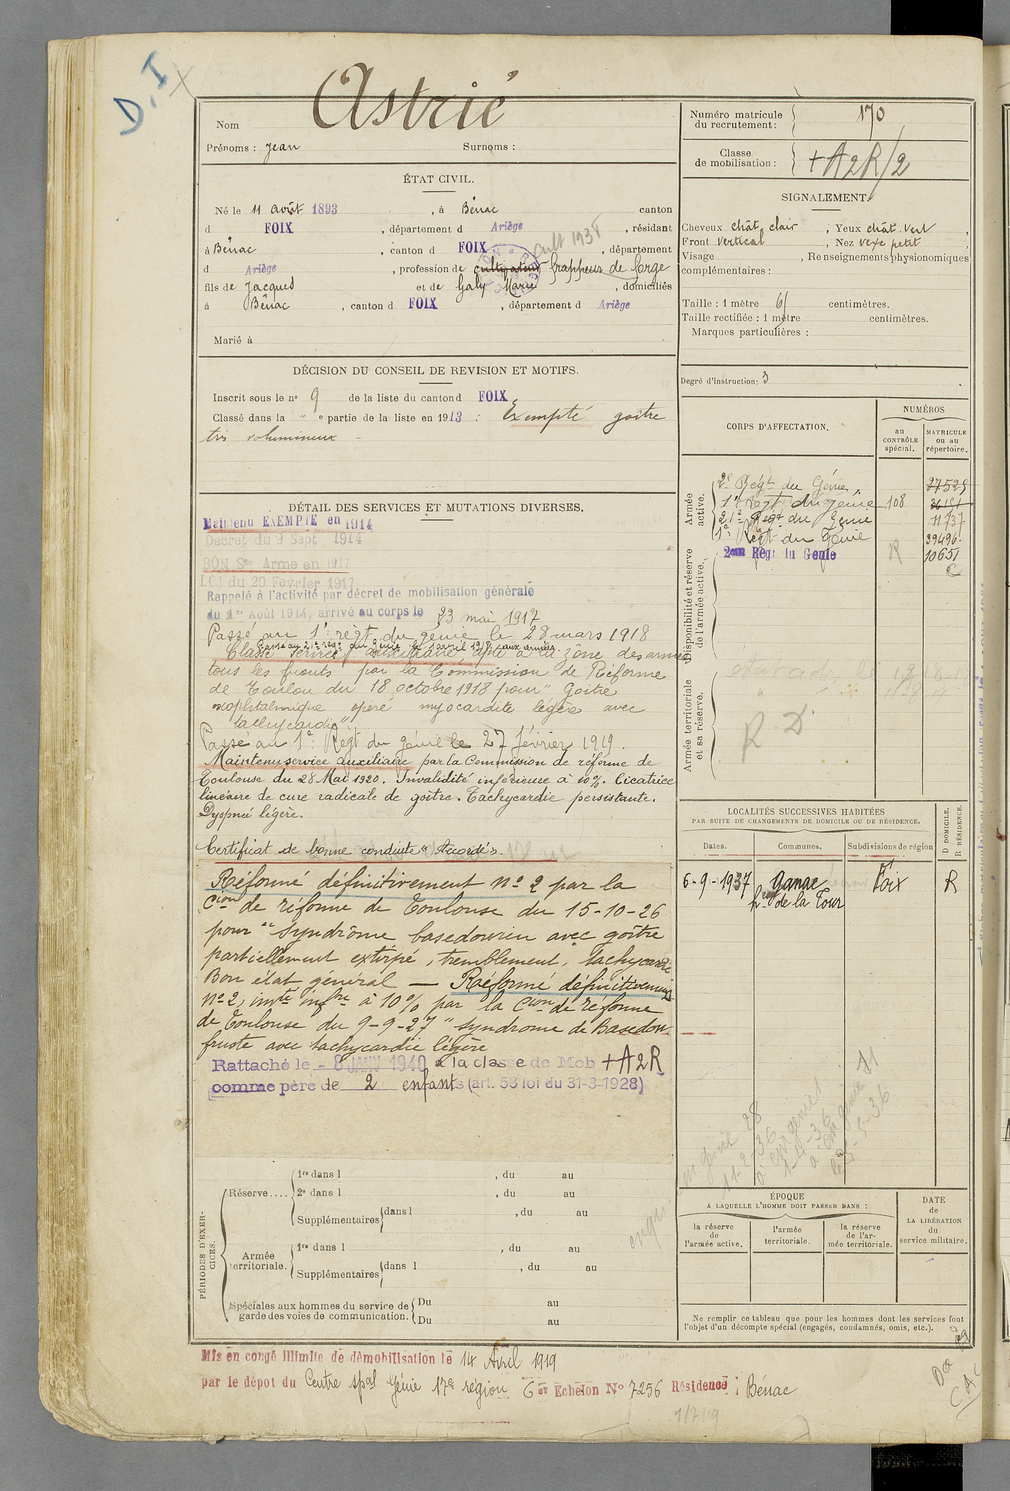 D.I X
Nom Astrié
Prénoms : Jean Surnoms :
ÉTAT CIVIL.
Né le 11 août 1893, à Bénac canton
d FOIX, département d Ariège, résidant
à Bénac, canton d FOIX, département
d Ariège, profession de cultivateur frappeur de forge
cult 193
fils de Jacques et de Galy Marie, domiciliés
à Bénac, canton d FOIX, département d Ariège
Marié à
DÉCISION DU CONSEIL DE REVISION ET MOTIFS.
Inscrit sous le n° 9 de la liste du canton d FOIX
Classé dans la " e partie de la liste en 1913 : Exempté goitre
très volumineux -
DÉTAIL DES SERVICES ET MUTATIONS DIVERSES.
Maintenu EXEMPTÉ en 1914
Décret du 9 Sept 1914
BON Sce Armé en 1917
LOI du 20 Février 1917
Rappelé à l'activité par décret de mobilisation générale
du 1er Août 1914, arrivé au corps le 23 mai 1917
Passé au 1er régt du génie le 28 mars 1918
Passé au 21e régt du génie le avril 1918
Classé service auxiliaire apte à la zône des armées
tous les fronts par la Commission de Réforme
de Toulon du 18 octobre 1918 pour "Goitre
exophtalmique opéré myocardite légère avec
tachycardie"
Passé au 1er Régt du génie le 27 février 1919.
Maintenu service auxiliaire par la Commission de réforme de
Toulouse du 28 Mai 1920. Invalidité inférieure à 10%. Cicatrice
linéaire de cure radicale de goitre. Tachycardie persistante.
Dyspnée légère.
Certificat de bonne conduite "Accordé".
Réformé définitivement n° 2 par la
Cion de réforme de Toulouse du 15-10-26
pour "Syndrôme basedowien avec goître
partiellement extirpé, tremblement, tachycardie
Bon état général — Réformé définitivement
n° 2, imté infre à 10% par la Cion de réforme
de Toulouse du 9-9-27 "syndrome de Basedow
fruste avec tachycardie légère
Rattaché le - 8 JANV 1940 à la classe de Mob +A2R
comme père de 2 enfants (art. 58 loi du 31-3-1928)
PÉRIODES D'EXERCICES.
Réserve.... 1re dans l , du au
2e dans l , du au
Supplémentaires dans l , du au
Armée territoriale. 1re dans l , du au
Supplémentaires dans l , du au
Spéciales aux hommes du service de garde des voies de communication. Du au
Du au
Mis en congé illimité de démobilisation le 14 Avril 1919
par le dépôt du Centre spal Génie 17e région 6 Echelon N° 7256 Résidence : Bénac
Numéro matricule du recrutement : 170
Classe de mobilisation : +A2R/2
SIGNALEMENT.
Cheveux chât. clair, Yeux chât. vert,
Front vertical, Nez vexe petit
Visage , Renseignements physionomiques
complémentaires :
Taille : 1 mètre 61 centimètres.
Taille rectifiée : 1 mètre centimètres.
Marques particulières :
Degré d'instruction : 3
CORPS D'AFFECTATION.
NUMÉROS
au CONTRÔLE spécial.
MATRICULE ou au répertoire.
Armée active.
2e Régt du Génie. 27525
1er Régt du génie 108
21e Régt du Génie 11737
1er Régt du Génie 39496
2ème Régt du Génie R 10651
C
Disponibilité et réserve de l'armée active.
Armée territoriale et sa réserve.
R D.
LOCALITÉS SUCCESSIVES HABITÉES
PAR SUITE DE CHANGEMENTS DE DOMICILE OU DE RÉSIDENCE.
Dates. Communes. Subdivisions de région
D DOMICILE. R RÉSIDENCE.
6-9-1937 Ganac de la Tour Foix R
ÉPOQUE
A LAQUELLE L'HOMME DOIT PASSER DANS :
la réserve de l'armée active.
l'armée territoriale.
la réserve de l'armée territoriale.
DATE de LA LIBÉRATION du service militaire.
Ne remplir ce tableau que pour les hommes dont les services font
l'objet d'un décompte spécial (engagés, condamnés, omis, etc.).